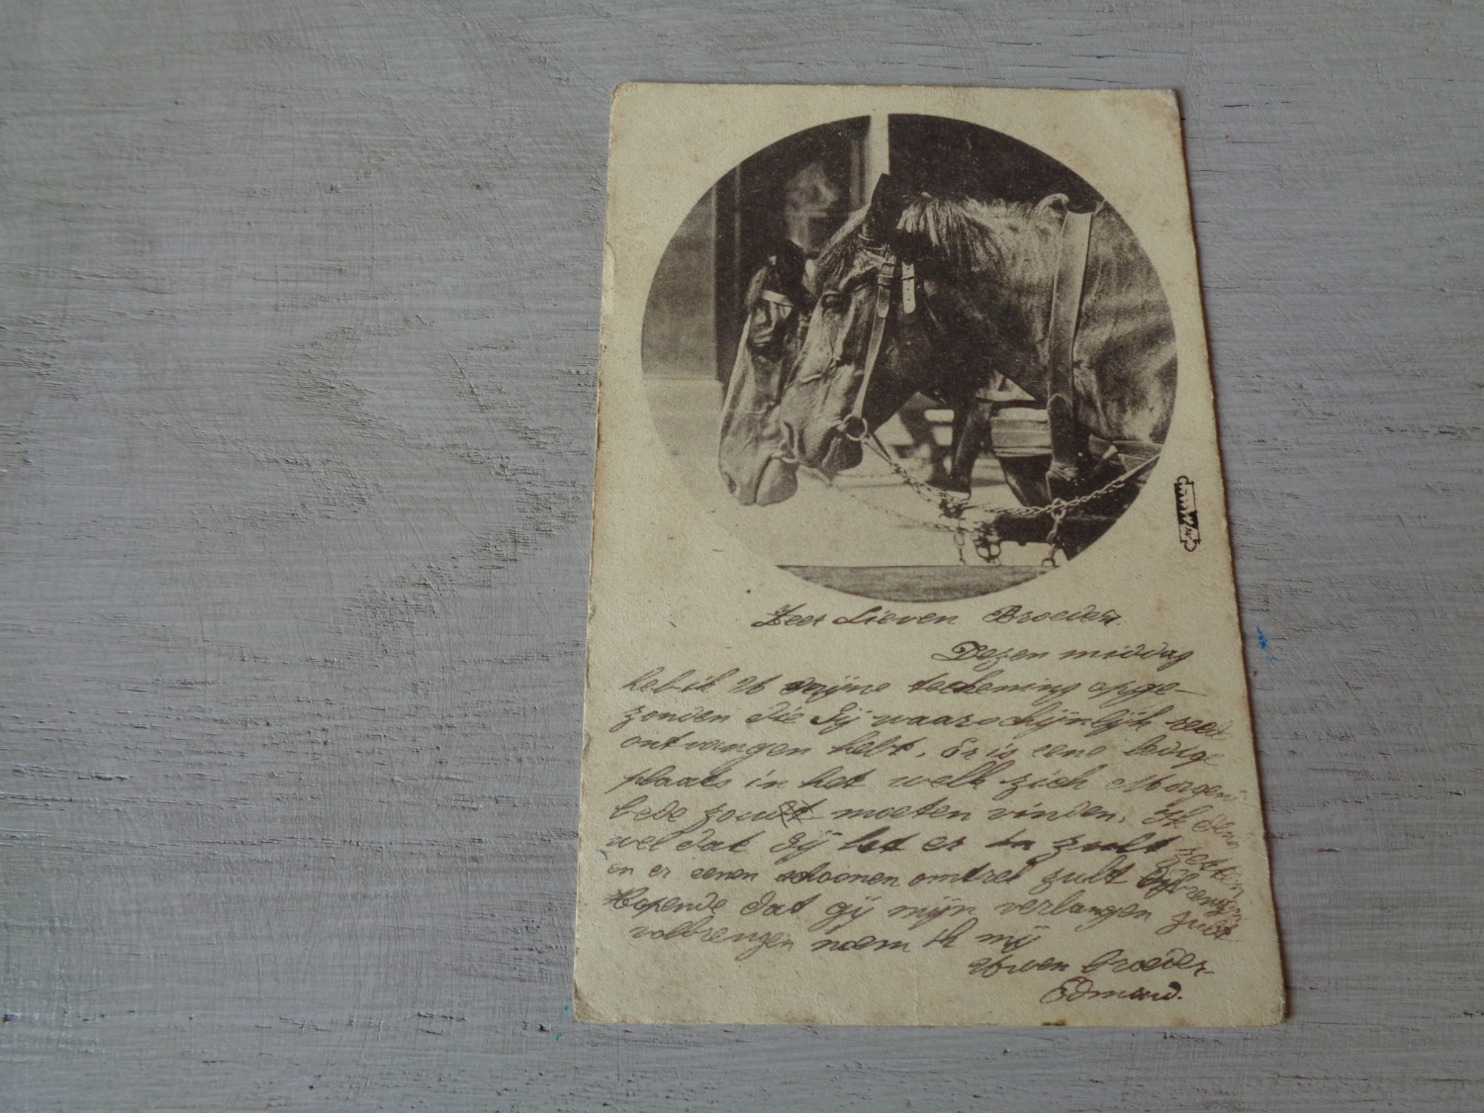 Zeer Lieven Broeder.
Dezen middag
heb ik U mijne teekening opge-
zonden die Gij waarschijnlijk reeds
ontvangen hebt. Er is eene ledige
plaats in het welk zich Morgen
bede moeten vinden. Ik
wel dat Gij het er in zult zetten
en er eenen schoonen omtrek zult bijbrengen
Hopende dat gij mijn verlangen zult
volbrengen noem ik mij
Uwen broeder
Edmond.